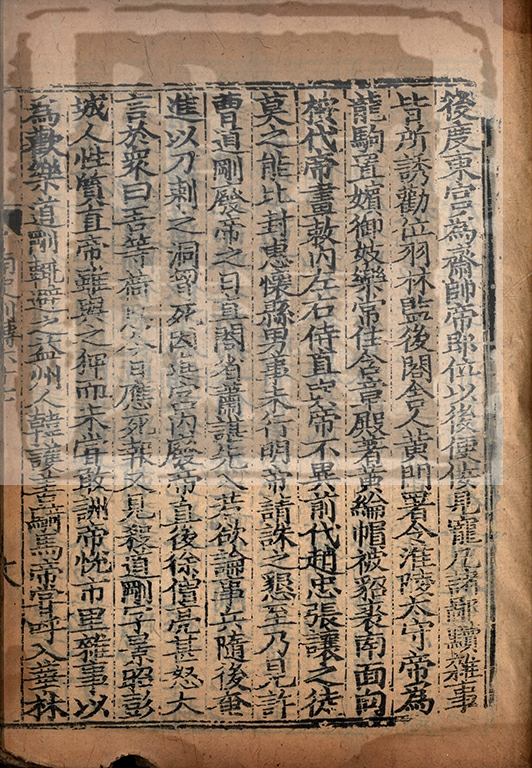 後度東宮為齋帥帝即位以後便佞見寵凡諸鄙黷雜事
皆所誘勸位羽林監後閤舍人黃門署令淮陵太守帝為
龍駒置嬪御妓樂常住含章殿著黃綸帽被貂裘南面向
桉代帝畫敕內左右侍直與帝不異前代趙忠張讓之徒
莫之能比封惠懷縣男事未行明帝請誅之懇至乃見許
曹道剛廢帝之日直閤省蕭諶先入若欲論事兵隨後奄
進以刀刺之洞胷死因進宮內廢帝直後徐僧亮甚怒大
言於眾曰吾等荷恩今日應死報又見殺道剛字景昭彭
城人性質直帝雖與之狎而未嘗敢訓帝悅市里雜事以
為歡樂道剛輒避之益州人韓護善騎馬帝嘗呼入華林